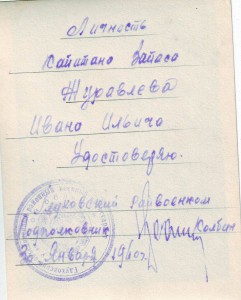 Личность
Капитана Запаса
Журавлёва
Ивана Ильича
Удостоверяю.
райвоенком
Подполковник Колбин
30 Января